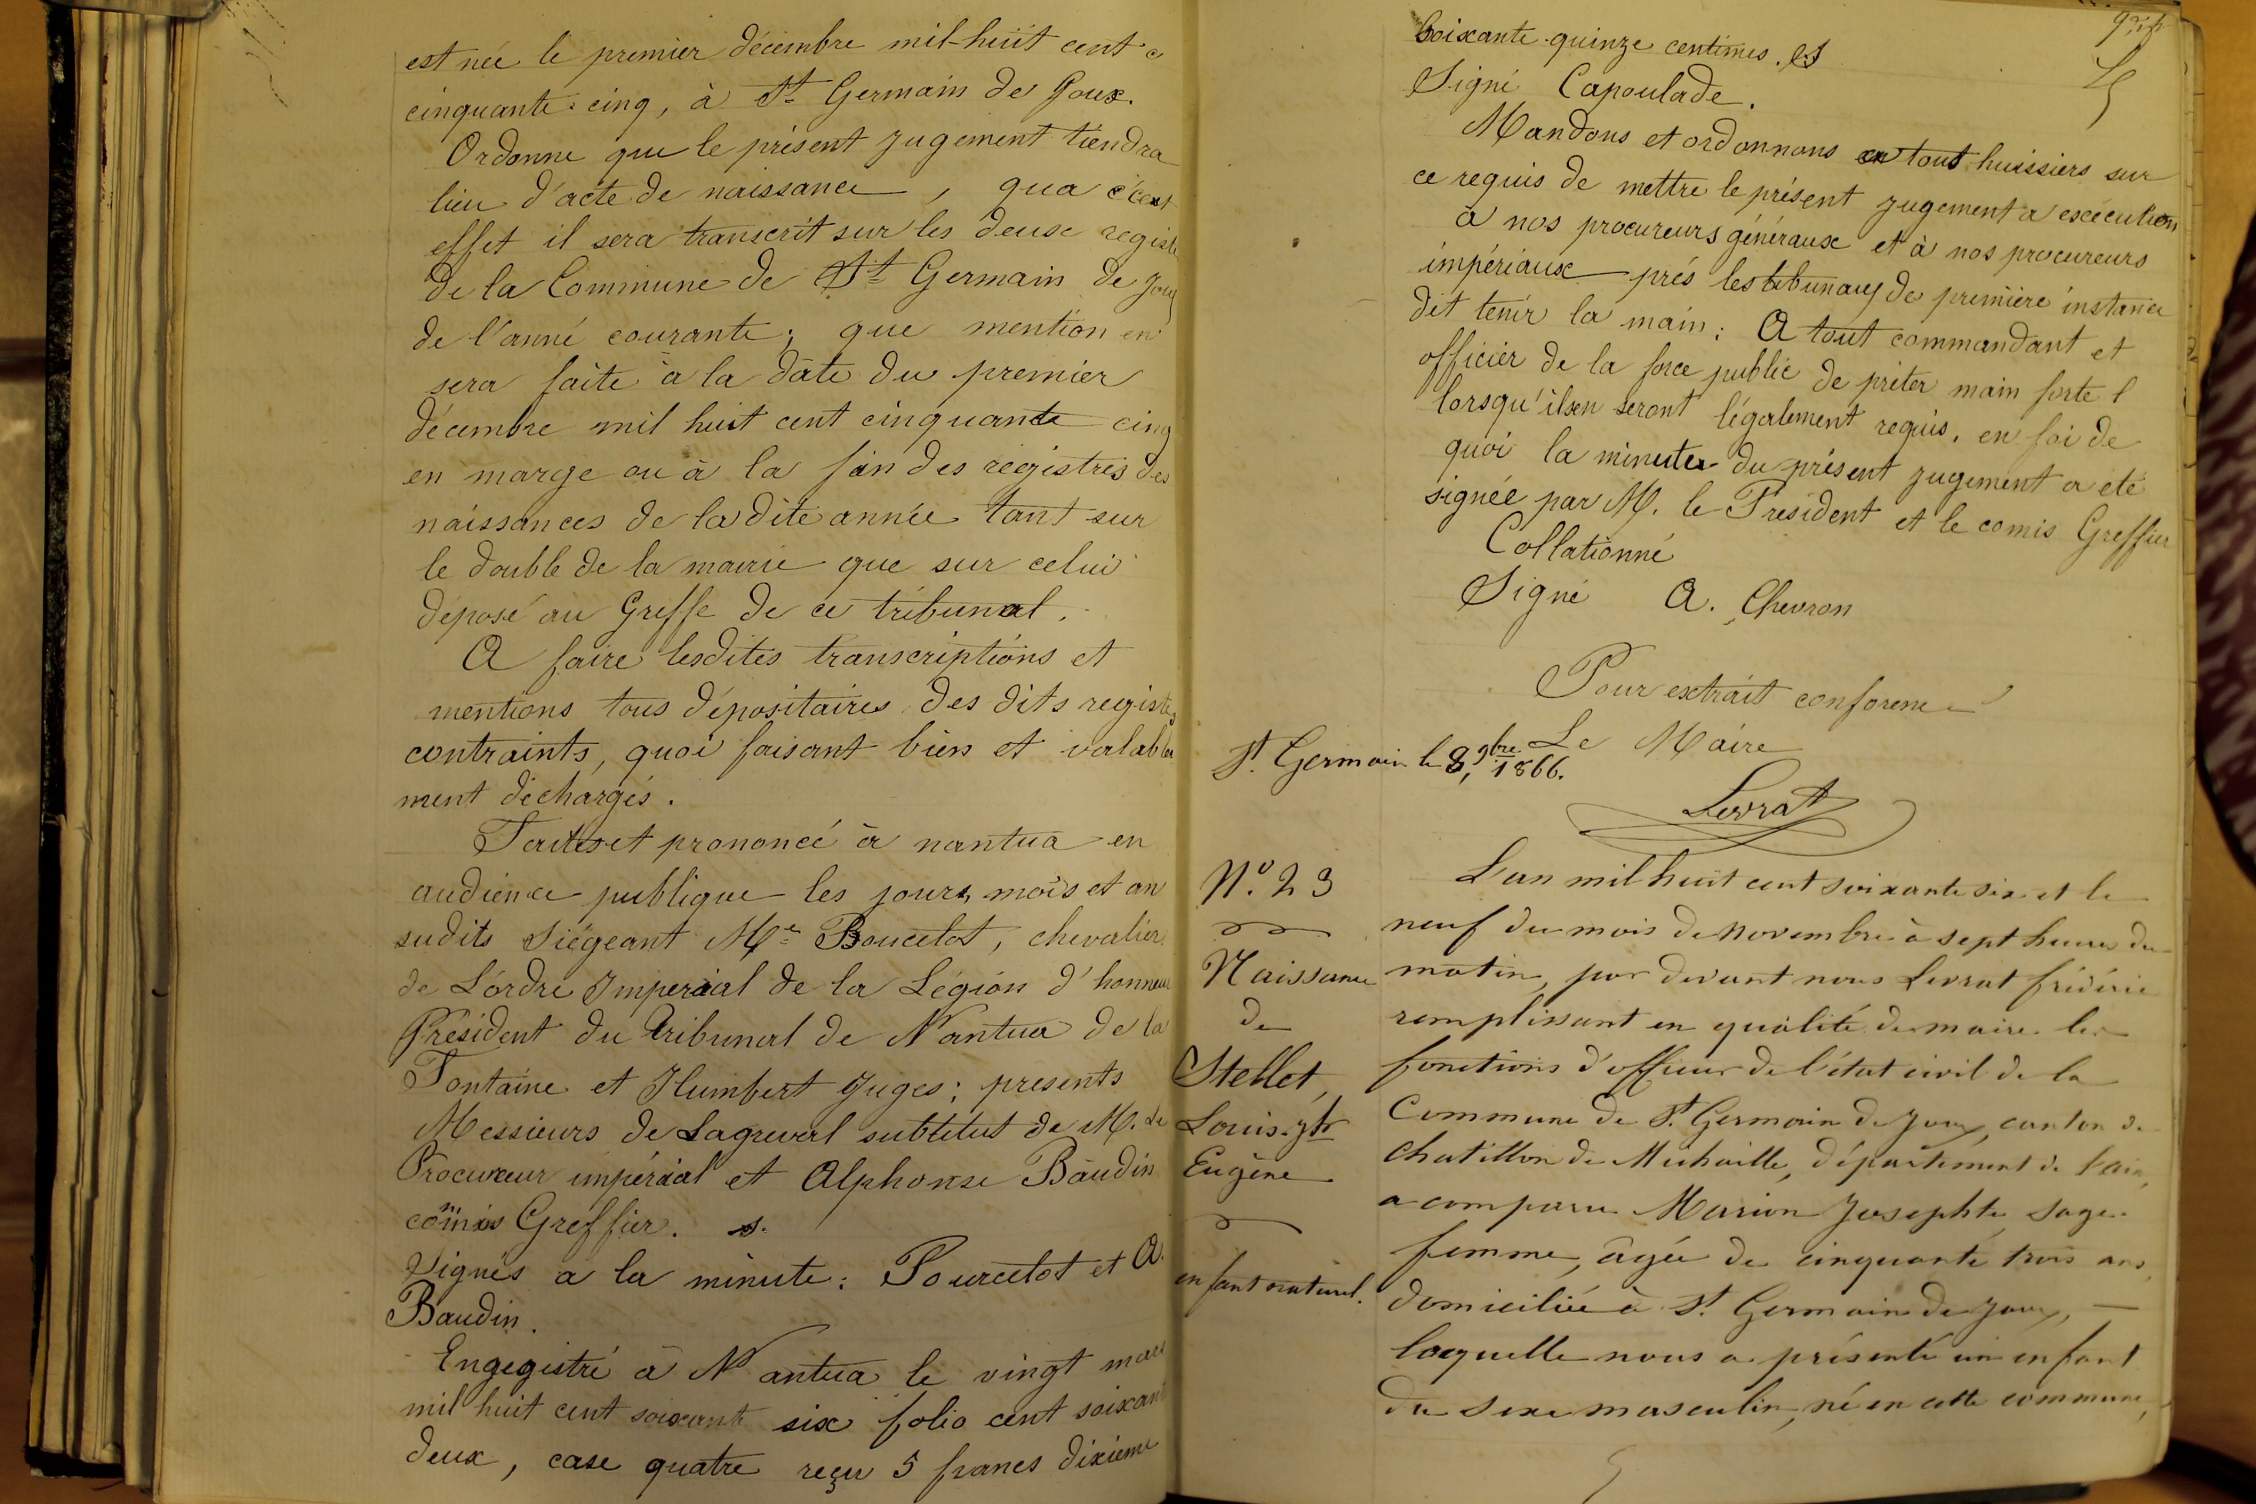 est née le premier décembre mil-huit cent
cinquante-cinq, à St Germain de Joux.
Ordonne que le présent jugement tiendra
lieu d'acte de naissance, qua cet
effet il sera transcrit sur les deux regist
de la Commune de St Germain de Joux
de l'anné courante; que mention en
sera faite à la date du premier
décembre mil huit cent cinquante cinq
en marge ou à la fin des registres des
naissances de la dite année tant sur
le double de la mairie que sur celui
déposé au Greffe de ce tribunal.
A faire lesdites transcriptions et
mentions tous dépositaires des dits registes
contraints, quoi faisant bien et valable
ment déchargés.
Faites et prononcé à nantua en
audience publique les jours, mois et an
sudits Siégeant Mr Poucelot, chevalier
de L'ordre Imperial de la Légion d'honneur
Président du Tribunal de Nantua de la
Fontaine et Humbert Juges; presents
Messieurs de Lagrevol subtitut de M. Le
Procureur impérial et Alphonse Baudin
commis Greffier.
Signés a la minute: Pourcelot et A.
Baudin.
Engegistré à Nantua le vingt mars
mil huit cent soixante six folio cent soixant
deux, case quatre reçu 5 francs dixieme
Soixante-quinze centimes.
Signé Capoulade.
Mandons et ordonnons tous huissiers sur
ce requis de mettre le présent jugement a exécution
à nos procureurs généraux et à nos procureurs
impériaux prés les tribunaux de première instance
dit tenir la main: A tout commandant et
officier de la force public de prêter main forte
lorsqu'ilsen seront légalement requis. en foi de
quoi la minute du présent jugement a été
signée par M. le Président et le comis Greffier
Collationné
Signé A. Chevron
Pour extrait conforme
Le Maire
St. Germain le 8, 9bre 1866.
Levrat
No. 23
Naissance
de
Stellet,
Louis-
Eugène
enfant naturel.
L'an mil huit cent soixante six et le
neuf du mois de novembre à sept heures du
matin, par devant nous Levrat frédéric
remplissant en qualité de maire les
fonctions d'officier de l'état civil de la
Commune de St. Germain de Joux, canton de
Chatillon de Michaille, département de l'ain,
a comparu Marion Josephte, sage-
femme, âgée de cinquante trois ans,
domiciliée à St. Germain de Joux,
laquelle nous a présenté un enfant
du sexe masculin, né en cette commune,